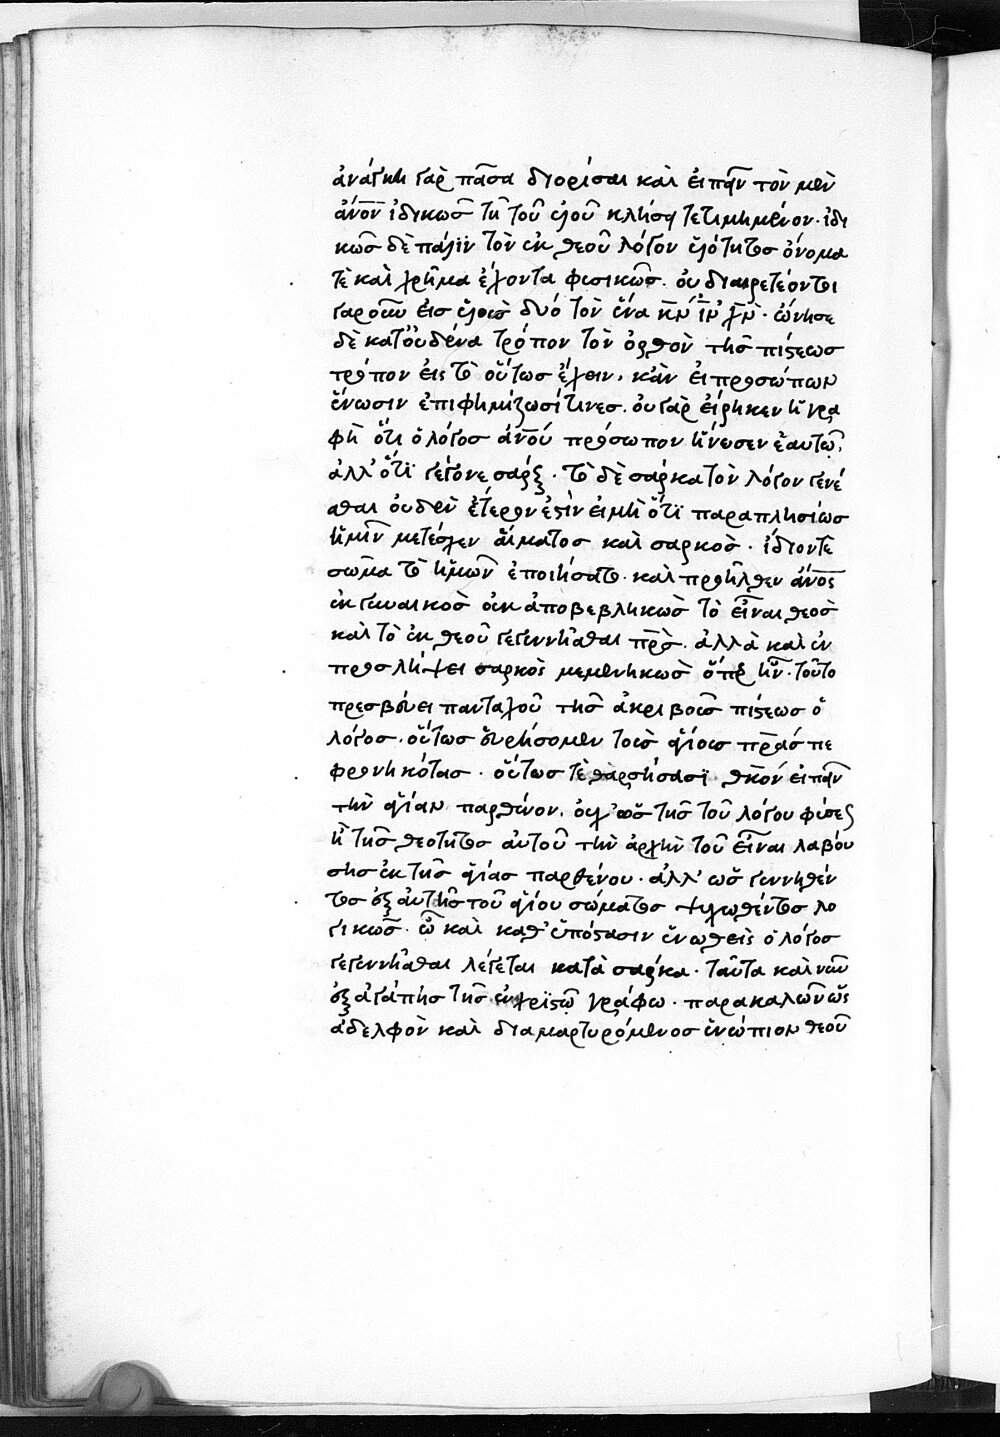 ἀνάγκη γὰρ πᾶσα διορίσαι καὶ εἰπεῖν τὸν μὲν
ἄνον ἰδικῶσ τῆ τοῦ υἱοῦ κλήσει τετιμημένον· ἰδι
κῶσ δὲ πάλϊν τὸν ἐκ θεοῦ λόγον υἱότητοσ ὄνομα
τὲ καὶ χρῆμα ἔχοντα φυσικῶσ. οὐ διαιρετέον τοι
γαροῦν εἰσ υἱοὺσ δυό τὸν ἕνα κ̅ν̅ ι̅ν̅ χ̅ν̅· ὠνησε
δὲ κατ' οὐδένα τρόπον τὸν ὀρθὸν τῆσ πίστεωσ
τρόπον εἰς τὸ οὕτωσ ἔχειν, κἂν εἰ προσώπων
ἕνωσιν ἐπιφημίζωσί τινεσ. οὐ γὰρ εἴρηκεν ἡ γρα
φὴ ὅτι ὁ λόγοσ ἀνοῦ πρόσωπον ἥνωσεν ἑαυτῶ,
ἀλλ' ὅτϊ γέγονε σάρξ· τὸ δὲ σάρκα τὸν λόγον γενέ
σθαι οὐδὲν ἕτερον ἐστὶν εἰ μὴ ὅτϊ παραπλησίωσ
ἡμῖν μετέσχεν αἵματοσ καὶ σαρκὸσ· ἴδιον τὲ
σῶμα τὸ ἡμῶν ἐποιήσατο· καὶ προῆλθεν ἄνος
ἐκ γυναικὸσ οὐκ ἀποβεβληκὼσ τὸ εἶναι θεὸσ
καὶ τὸ ἐκ θεοῦ γεγεννῆσθαι π̅ρ̅σ̅. ἀλλὰ καὶ ἐν
προσλήψει σαρκὸς μεμενηκὼσ ὅπερ ἦν· τοῦτο
πρεσβεύει πανταχοῦ τῆσ ἀκριβοῦσ πίστεωσ ὁ
λόγοσ· οὕτωσ εὑρήσομεν τοὺσ ἁγίουσ π̅ρ̅ασ πε
φρονηκότασ· οὕτωσ τεθαρσήσασϊ θ̅κον εἰπεῖν
τὴν ἁγίαν παρθένον, οὐχ' ὡσ τῆσ τοῦ λόγου φύσεως
ἢ τῆσ θεότητοσ αὐτοῦ τὴν ἀρχὴν τοῦ εἶναι λαβού
σησ ἐκ τῆσ ἁγίασ παρθένου· ἀλλ' ὡσ γεννηθέν
τοσ ἐξ αὐτῆσ τοῦ ἁγίου σώματοσ ψυχωθέντοσ λο
γικῶσ· ᾧ καὶ καθ' ὑπόστασιν ἑνωθεὶς ὁ λόγοσ
γεγεννῆσθαι λέγεται κατὰ σάρκα· ταῦτα καὶ νῦν
ἐξ ἀγάπησ τῆσ ἐν χριϊστῶ γράφω· παρακαλῶν ὡς
ἀδελφὸν καὶ διαμαρτυρόμενοσ ἐνώπιον θεοῦ